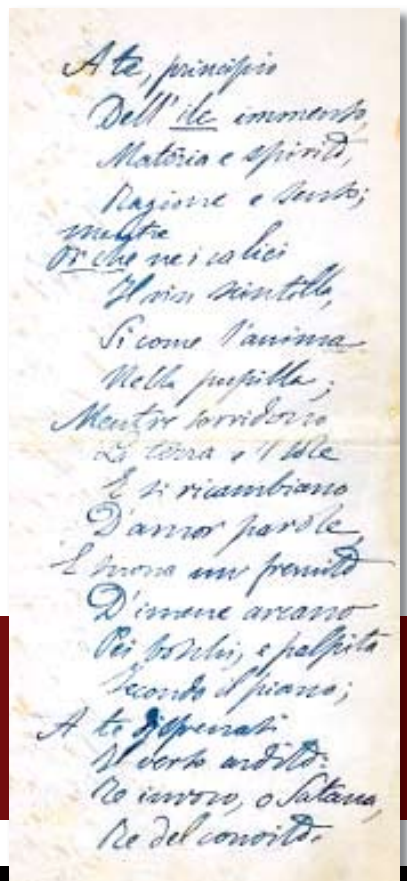 A te, principio
Dell' ile immenso,
Materia e spirito,
Ragione e senso;
mentre
Or che ne i calici
Il vin scintilla,
Sì come l'anima
Nella pupilla;
Mentre sorridono
La terra e il sole
E si ricambiano
D'amor parole,
E suona un fremito
D'imene arcano
Pei boschi, e palpita
Fecondo il piano;
A te disfrenasi
Il verso ardito:
Te invoco, o Satana,
Re del convito.